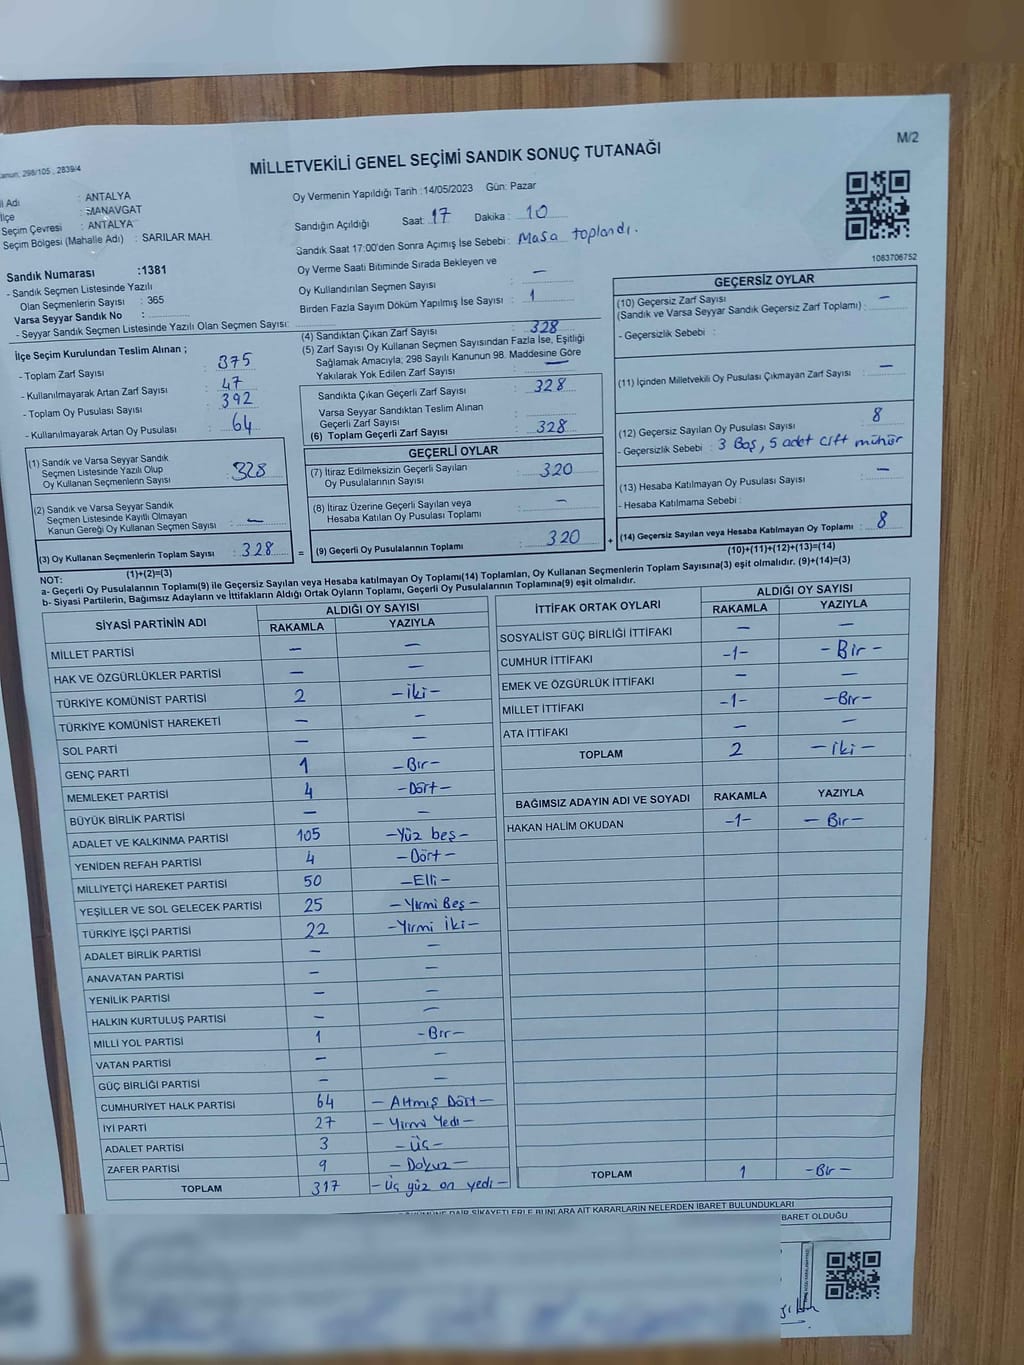 M/2
MİLLETVEKİLİ GENEL SEÇİMİ SANDIK SONUÇ TUTANAĞI
298/105 , 2839/4
Adı : ANTALYA
İlçe : MANAVGAT
Seçim Çevresi : ANTALYA
Seçim Bölgesi (Mahalle Adı) : SARILAR MAH.
Oy Vermenin Yapıldığı Tarih :14/05/2023 Gün: Pazar
Sandığın Açıldığı Saat: 17 Dakika : 10
Sandık Saat 17:00'den Sonra Açımış İse Sebebi : Masa toplandı.
Oy Verme Saati Bitiminde Sırada Bekleyen ve
Oy Kullandırılan Seçmen Sayısı : —
Birden Fazla Sayım Döküm Yapılmış İse Sayısı : 1
1083706752
Sandık Numarası :1381
- Sandık Seçmen Listesinde Yazılı
Olan Seçmenlerin Sayısı : 365
Varsa Seyyar Sandık No :
- Seyyar Sandık Seçmen Listesinde Yazılı Olan Seçmen Sayısı:
İlçe Seçim Kurulundan Teslim Alınan ;
- Toplam Zarf Sayısı : 375
- Kullanılmayarak Artan Zarf Sayısı : 47
- Toplam Oy Pusulası Sayısı : 392
- Kullanılmayarak Artan Oy Pusulası : 64
(1) Sandık ve Varsa Seyyar Sandık
Seçmen Listesinde Yazılı Olup
Oy Kullanan Seçmenlerin Sayısı : 328
(2) Sandık ve Varsa Seyyar Sandık
Seçmen Listesinde Kayıtlı Olmayan
Kanun Gereği Oy Kullanan Seçmen Sayısı : —
(3) Oy Kullanan Seçmenlerin Toplam Sayısı : 328
(1)+(2)=(3)
(4) Sandıktan Çıkan Zarf Sayısı : 328
(5) Zarf Sayısı Oy Kullanan Seçmen Sayısından Fazla İse, Eşitliği
Sağlamak Amacıyla; 298 Sayılı Kanunun 98. Maddesine Göre
Yakılarak Yok Edilen Zarf Sayısı : —
Sandıkta Çıkan Geçerli Zarf : 328
Varsa Seyyar Sandıktan Teslim Alınan
Geçerli Zarf Sayısı :
(6) Toplam Geçerli Zarf Sayısı : 328
GEÇERLİ OYLAR
(7) İtiraz Edilmeksizin Geçerli Sayılan
Oy Pusulalarının Sayısı : 320
(8) İtiraz Üzerine Geçerli Sayılan veya
Hesaba Katılan Oy Pusulası Toplamı : —
= (9) Geçerli Oy Pusulalarının Toplamı : 320 +
GEÇERSİZ OYLAR
(10) Geçersiz Zarf Sayısı
(Sandık ve Varsa Seyyar Sandık Geçersiz Zarf Toplamı) : —
- Geçersizlik Sebebi :
(11) İçinden Milletvekili Oy Pusulası Çıkmayan Zarf Sayısı : —
(12) Geçersiz Sayılan Oy Pusulası Sayısı : 8
- Geçersizlik Sebebi : 3 Boş, 5 adet Çift mühür
(13) Hesaba Katılmayan Oy Pusulası Sayısı : —
- Hesaba Katılmama Sebebi :
(14) Geçersiz Sayılan veya Hesaba Katılmayan Oy Toplamı : 8
(10)+(11)+(12)+(13)=(14)
NOT:
a- Geçerli Oy Pusulalarının Toplamı(9) ile Geçersiz Sayılan veya Hesaba katılmayan Oy Toplamı(14) Toplamları, Oy Kullanan Seçmenlerin Toplam Sayısına(3) eşit olmalıdır. (9)+(14)=(3)
b- Siyasi Partilerin, Bağımsız Adayların ve İttifakların Aldığı Ortak Oyların Toplamı, Geçerli Oy Pusulalarının Toplamına(9) eşit olmalıdır.
SİYASİ PARTİNİN ADI ALDIĞI OY SAYISI
RAKAMLA YAZIYLA
MİLLET PARTİSİ — —
HAK VE ÖZGÜRLÜKLER PARTİSİ — —
TÜRKİYE KOMÜNİST PARTİSİ 2 —iki—
TÜRKİYE KOMÜNİST HAREKETİ — —
SOL PARTİ — —
GENÇ PARTİ 1 —Bir—
MEMLEKET PARTİSİ 4 —Dört—
BÜYÜK BİRLİK PARTİSİ — —
ADALET VE KALKINMA PARTİSİ 105 —Yüz beş—
YENİDEN REFAH PARTİSİ 4 —Dört—
MİLLİYETÇİ HAREKET PARTİSİ 50 —Elli—
YEŞİLLER VE SOL GELECEK PARTİSİ 25 —Yirmi Beş—
TÜRKİYE İŞÇİ PARTİSİ 22 —Yirmi İki—
ADALET BİRLİK PARTİSİ — —
ANAVATAN PARTİSİ — —
YENİLİK PARTİSİ — —
HALKIN KURTULUŞ PARTİSİ — —
MİLLİ YOL PARTİSİ 1 —Bir—
VATAN PARTİSİ — —
GÜÇ BİRLİĞİ PARTİSİ — —
CUMHURİYET HALK PARTİSİ 64 —Altmış Dört—
İYİ PARTİ 27 —Yirmi Yedi—
ADALET PARTİSİ 3 —Üç—
ZAFER PARTİSİ 9 —Dokuz—
TOPLAM 317 —Üç yüz on yedi—
İTTİFAK ORTAK OYLARI ALDIĞI OY SAYISI
RAKAMLA YAZIYLA
SOSYALİST GÜÇ BİRLİĞİ İTTİFAKI — —
CUMHUR İTTİFAKI -1- —Bir—
EMEK VE ÖZGÜRLÜK İTTİFAKI — —
MİLLET İTTİFAKI -1- —Bir—
ATA İTTİFAKI — —
TOPLAM 2 —iki—
BAĞIMSIZ ADAYIN ADI VE SOYADI RAKAMLA YAZIYLA
HAKAN HALİM OKUDAN -1- —Bir—
TOPLAM 1 —Bir—
DAİR ŞİKAYETLERLE BUNLARA AİT KARARLARIN NELERDEN İBARET BULUNDUKLARI
BARET OLDUĞU